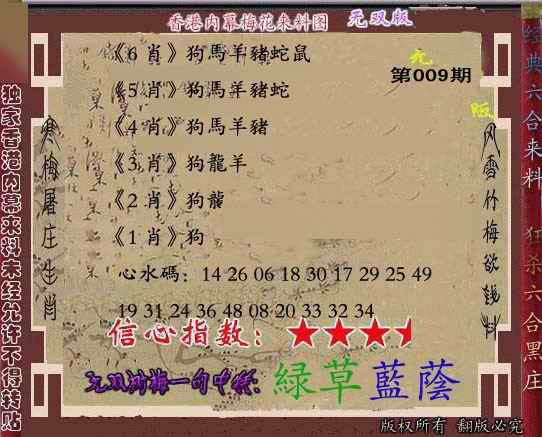 香港内幕梅花来料图 无双版
《6 肖》狗馬羊豬蛇鼠
无
第009期
《5 肖》狗馬羊豬蛇
版
《4 肖》狗馬羊豬
《3 肖》狗龍羊
《2 肖》狗龍
《1 肖》狗
心水碼：14 26 06 18 30 17 29 25 49
19 31 24 36 48 08 20 33 32 34
信心指数：★★★
无双 梅一句中特：綠草藍蔭
版权所有 翻版必究
独家香港内幕来料未经允许不得转贴
寒梅屠庄生肖
风雪竹梅欲钱料
经典六合来料 狂杀六合黑庄